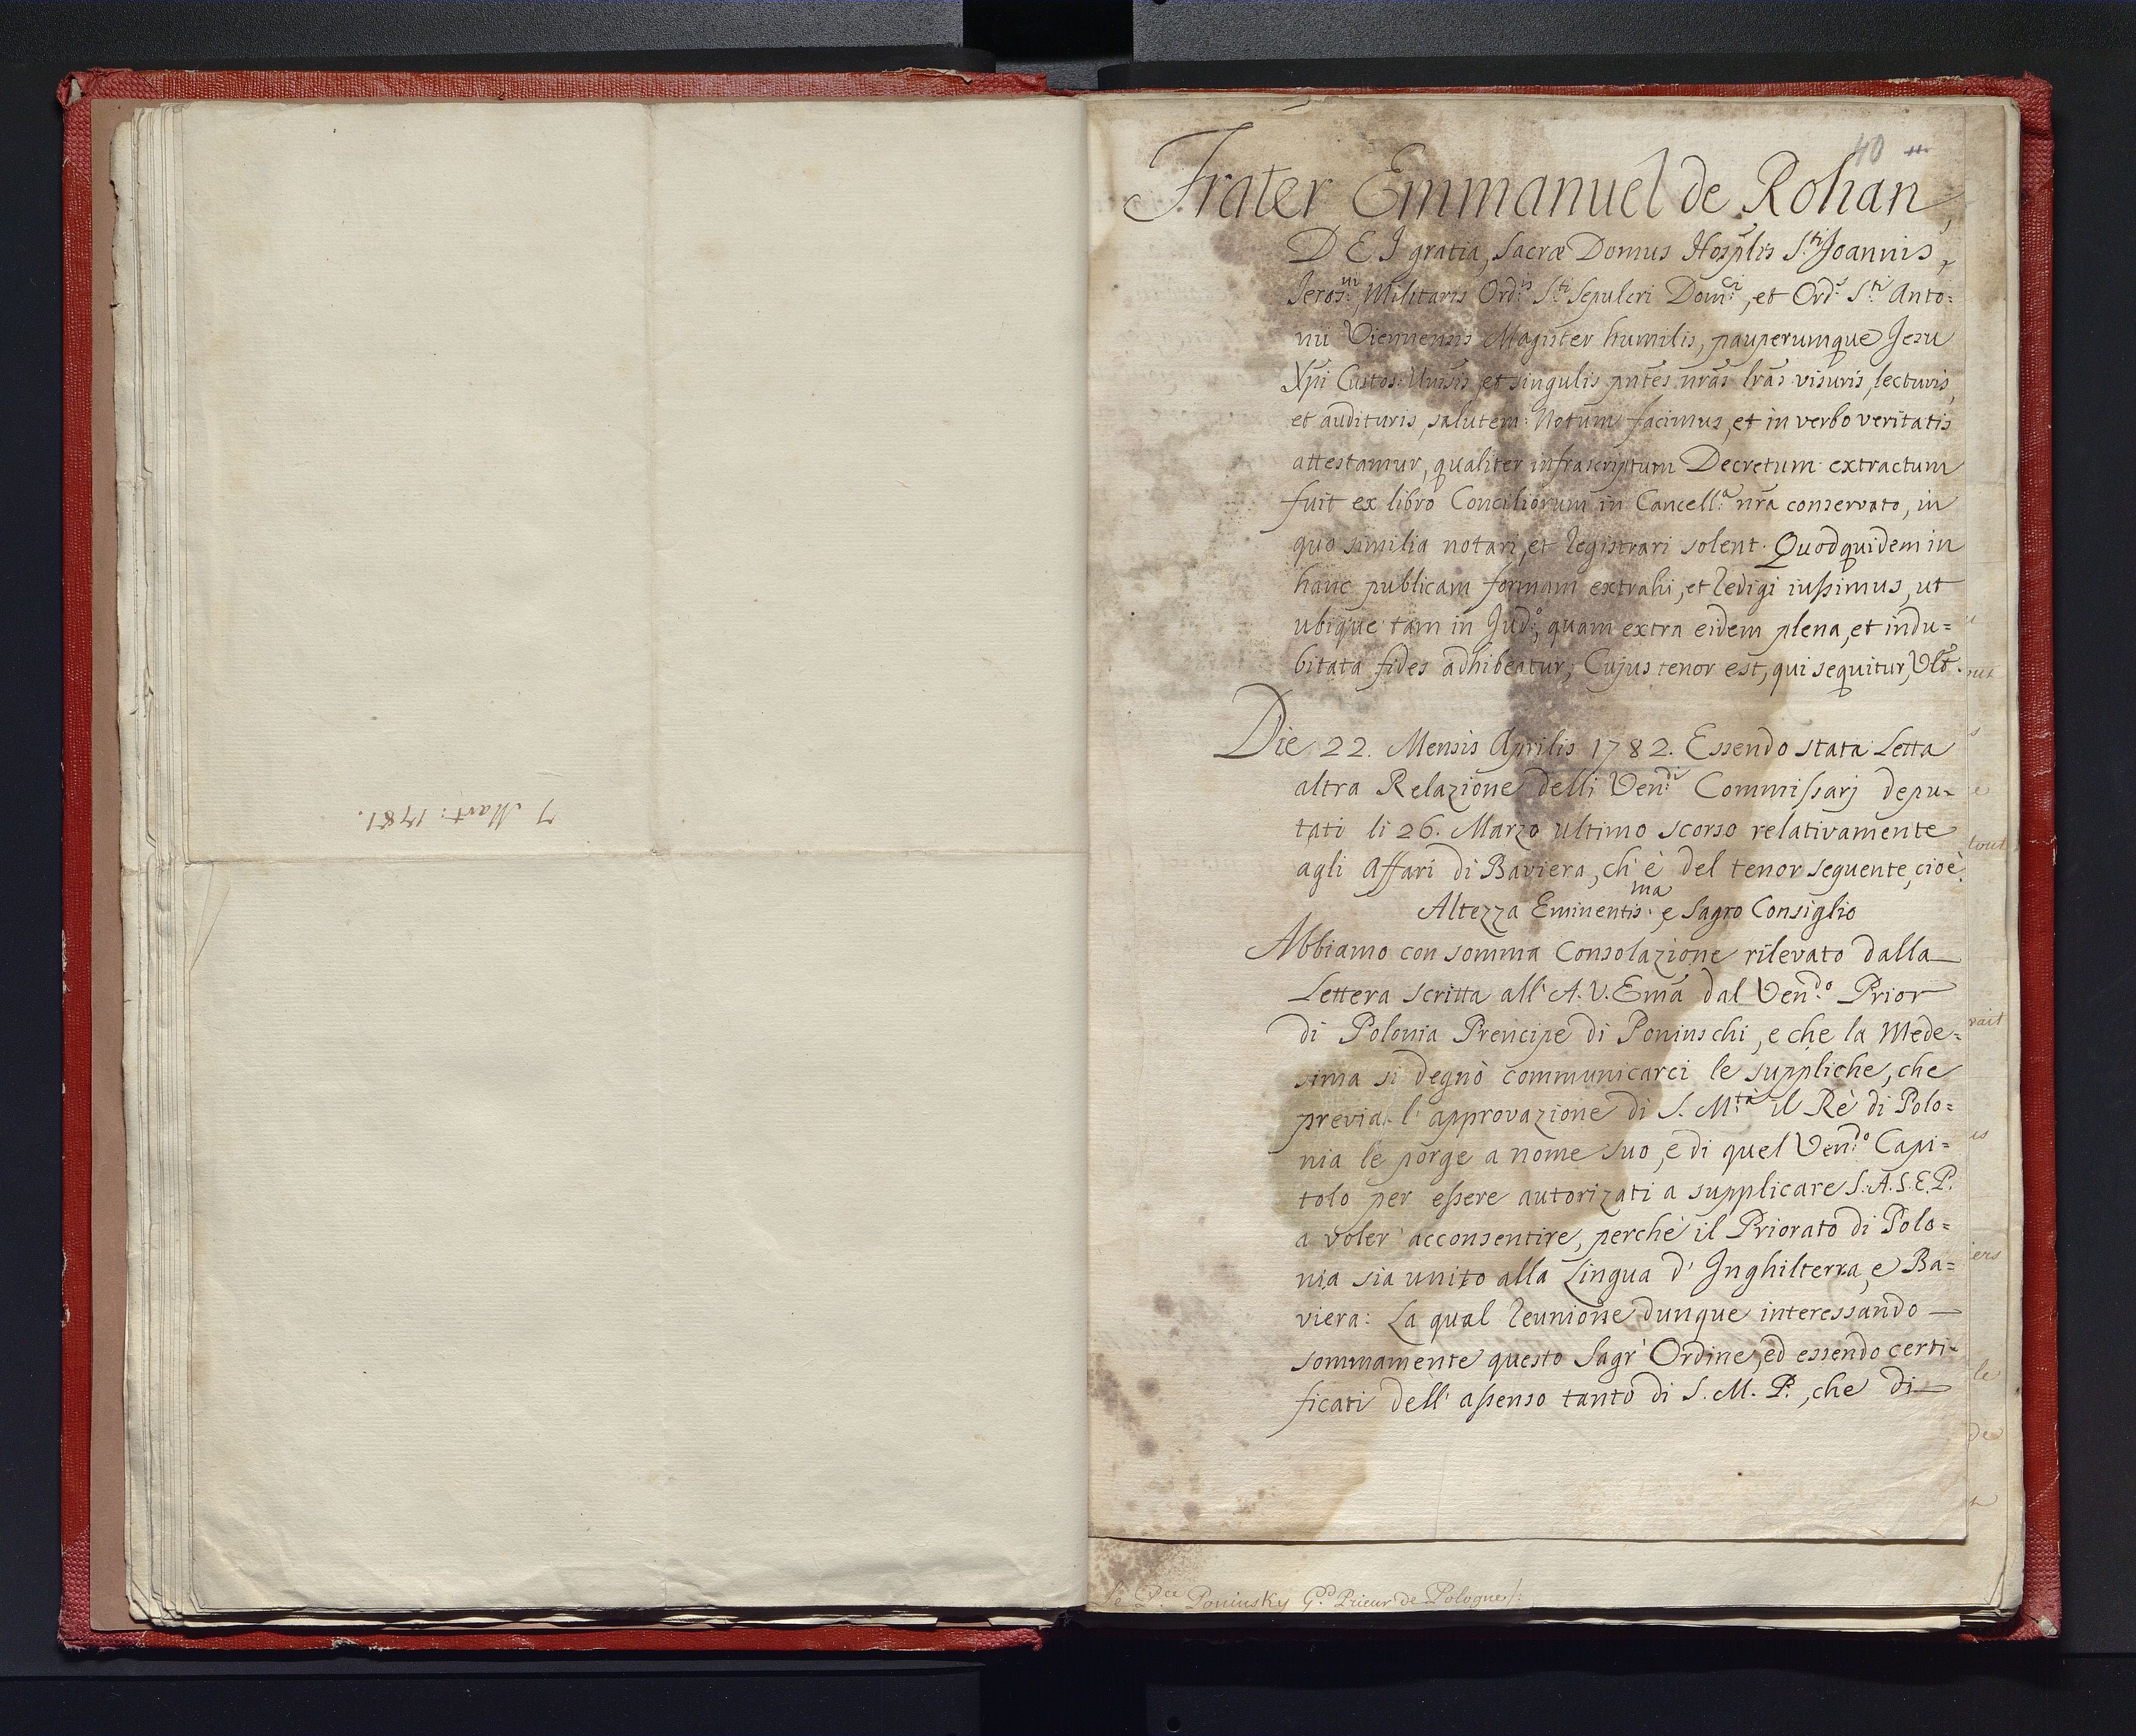 7 Mart: 1781.
40
Frater Emmanuel de Rohan,
DEI gratia, Sacræ Domus Hosp̃lis S.ti Joannis
Jeros.mi Militaris Ord.is S.ti Sepulcri Dom.ci, et Ord.s S.ti Anto=
nii Viennensis Magister humilis, pauperumque Jesu
Xp̃i Custos: Uniṽsis et singulis pñtes nr̃as lr̃as visuris, lecturis,
et audituris, salutem: Notum facimus, et in verbo veritatis
attestamur, qualiter infrascriptum Decretum extractum
fuit ex libro Conciliorum in Cancell.a nr̃a conservato, in
quo similia notari, et registrari solent. Quodquidem in
hanc publicam formam extrahi, et redigi iussimus, ut
ubique tam in Jud.o, quam extra eidem plena, et indu=
bitata fides adhibeatur; Cujus tenor est, qui sequitur, Vlt̃.
Die 22. Mensis Aprilis 1782. Essendo stata Letta
altra Relazione delli Ven.di Commissarj depu-
tati li 26. Marzo ultimo scorso relativamente
agli Affari di Baviera, ch'è del tenor seguente, cioè.
Altezza Eminentis.ma e Sagro Consiglio
Abbiamo con somma Consolazione rilevato dalla
Lettera scritta all'A. V. Em̃a dal Ven.do Prior
di Polonia Prencipe di Poninschi, e che la Mede=
sima si degnò communicarci le suppliche, che
previa l'approvazione di S. M.tà il Rè di Polo=
nia le porge a nome suo, e di quel Ven.do Capi=
tolo per essere autorizati a supplicare S. A. S. E. P.
a voler acconsentire, perchè il Priorato di Polo=
nia sia unito alla Lingua d'Inghilterra, e Ba=
viera: La qual reunione dunque interessando
sommamente questo Sagr'Ordine, ed essendo certi=
ficati dell'assenso tanto di S. M. P., che di
tout
vait
iers
le
de
le P.ce Poninsky G.d Prieur de Pologne